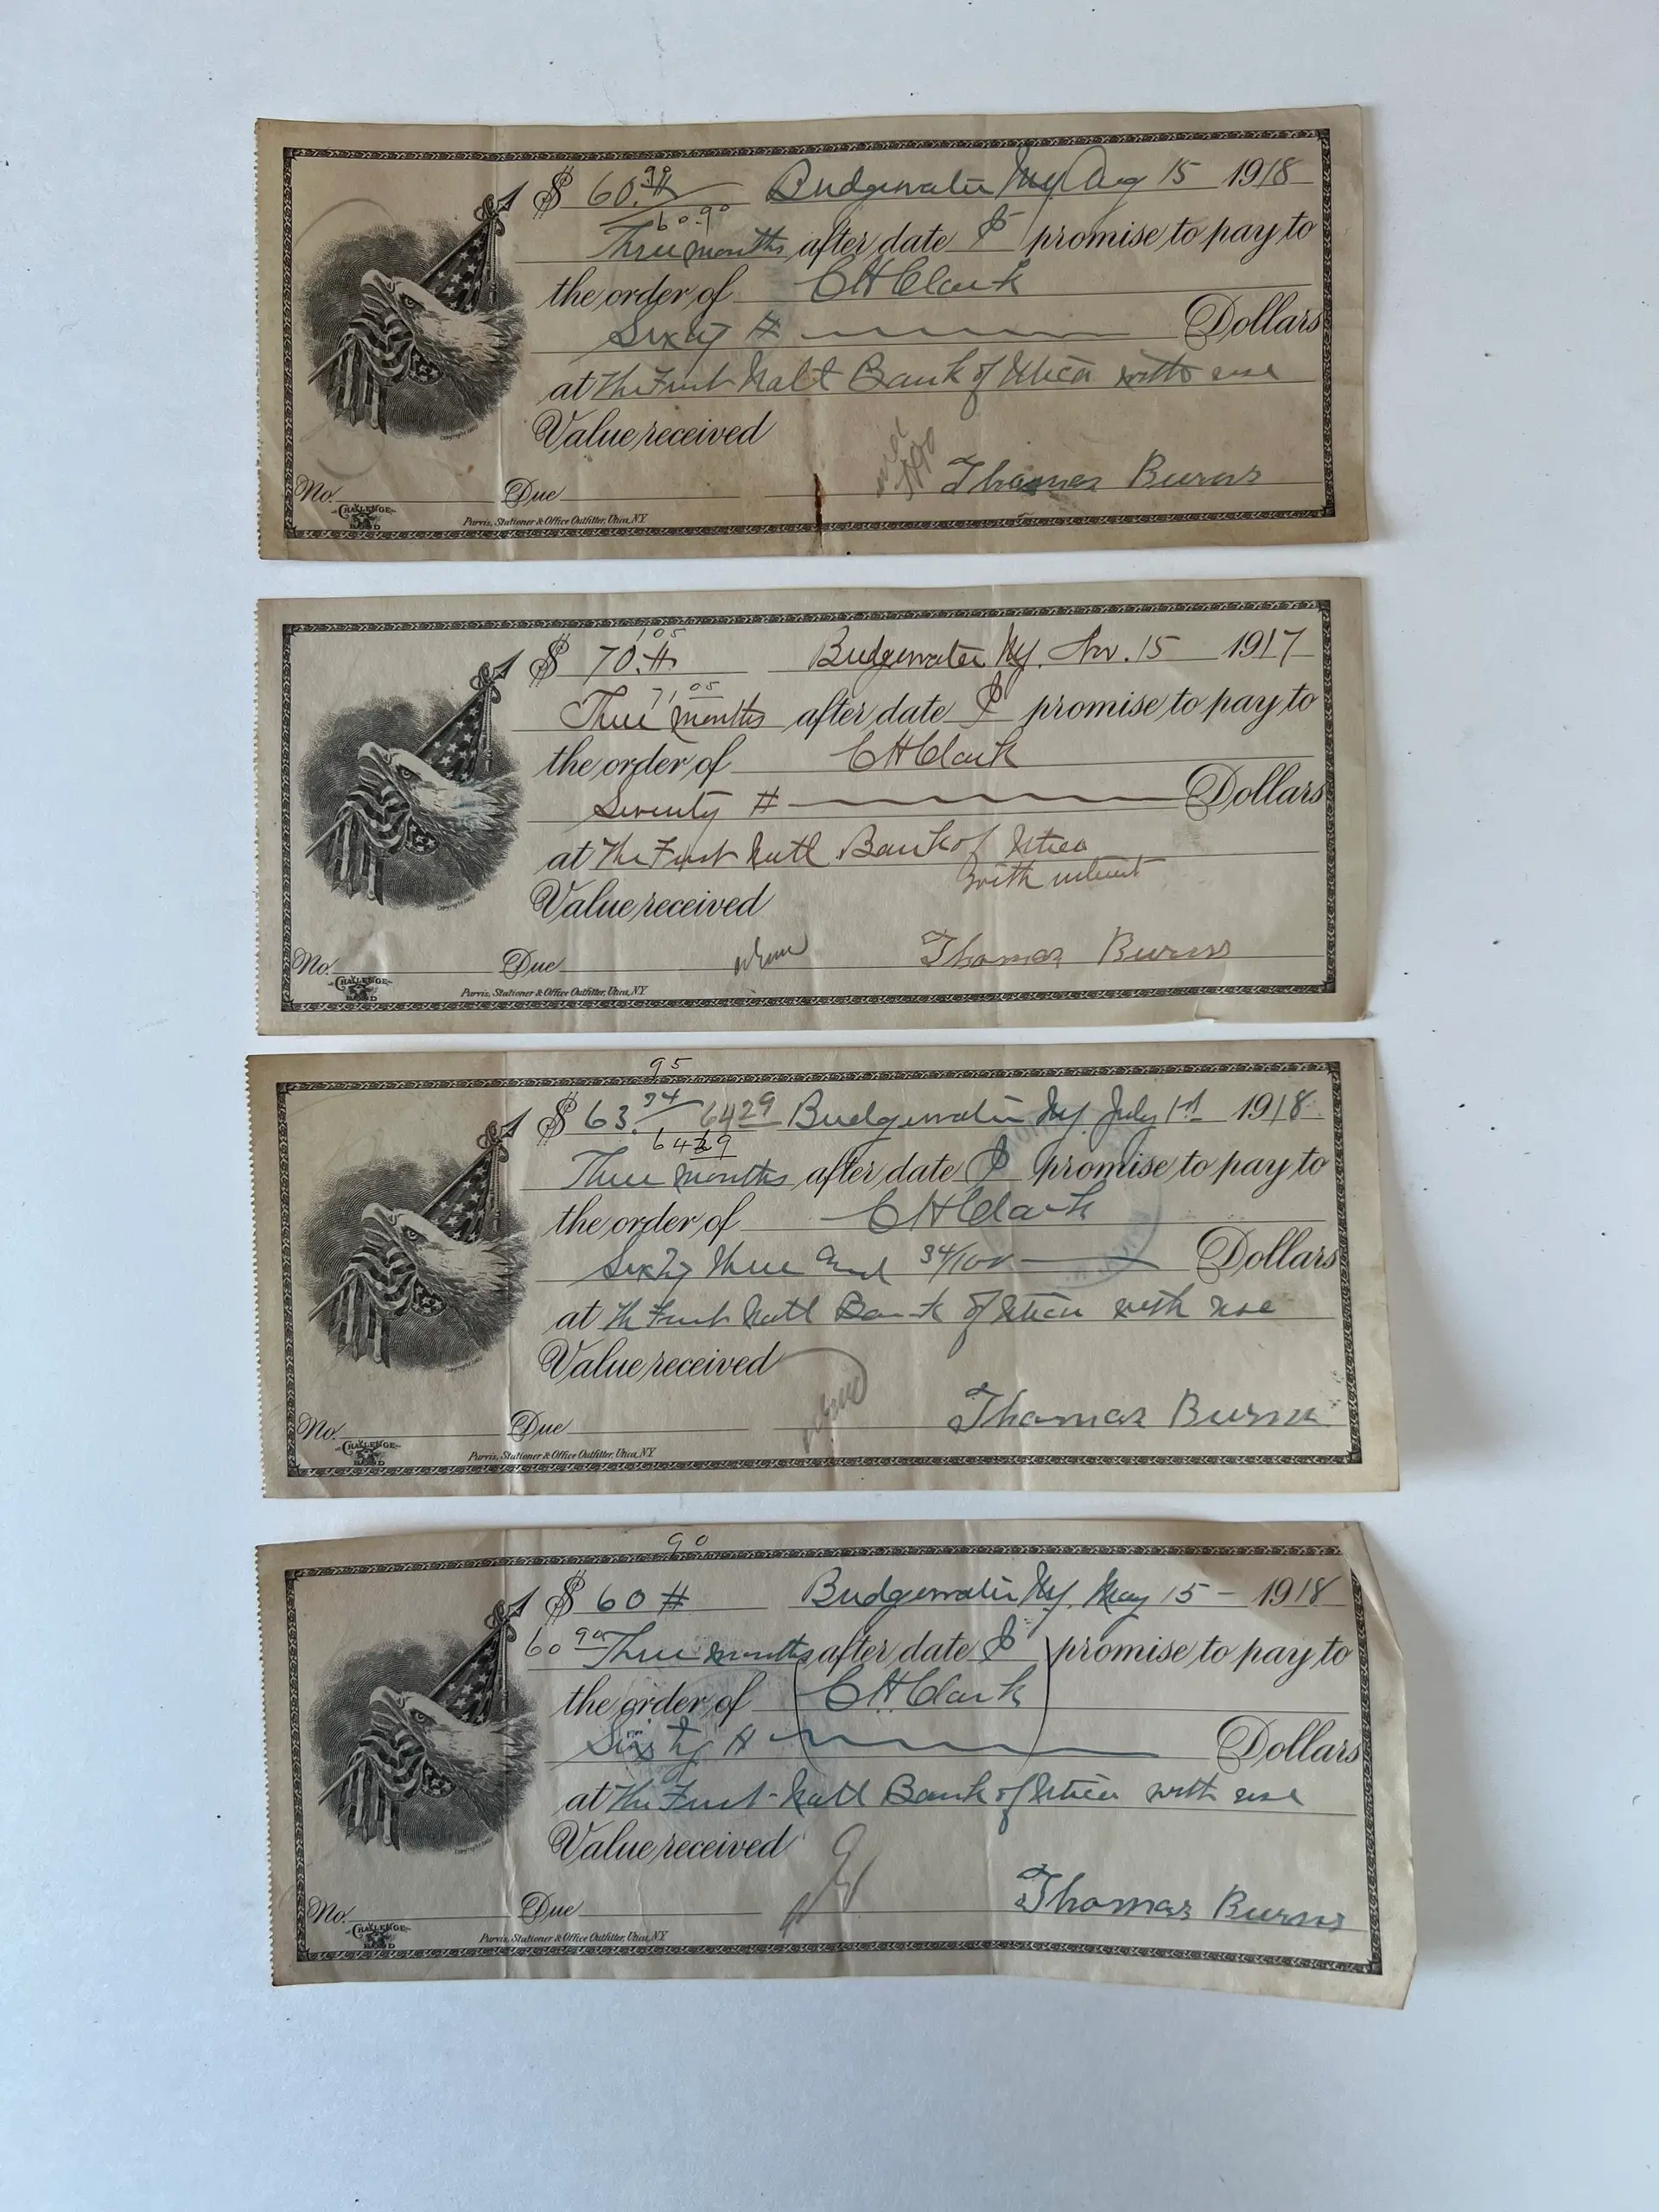 $ 60.## 90 Bridgewater Ny. Aug 15 1918
60.90
Three months after date I promise to pay to
the order of C H Clark
Sixty # Dollars
at The First Natl Bank of Utica with use
Value received
Thomas Burns
No. Due
CHALLENGE
BOND
Purvis, Stationer & Office Outfitter, Utica, N.Y.
1 05
$ 70.## Bridgewater Ny. Nov. 15 1917
71.05
Three months after date I promise to pay to
the order of C H Clark
Seventy # Dollars
at The First Natl. Bank of Utica
with interest
Value received
Thomas Burns
No. Due
CHALLENGE
BOND
Purvis, Stationer & Office Outfitter, Utica, N.Y.
95
$ 63.34 6429 Bridgewater Ny. July 1st 1918
6429
Three months after date I promise to pay to
the order of C H Clark
Sixty three and 34/100 Dollars
at The First Natl Bank of Utica with use
Value received
Thomas Burns
No. Due
CHALLENGE
BOND
Purvis, Stationer & Office Outfitter, Utica, N.Y.
90
$ 60 # Bridgewater Ny. May 15 - 1918
60 90 Three months after date I promise to pay to
the order of C H Clark
Sixty # Dollars
at The First Natl Bank of Utica with use
Value received
Thomas Burns
No. Due
CHALLENGE
BOND
Purvis, Stationer & Office Outfitter, Utica, N.Y.